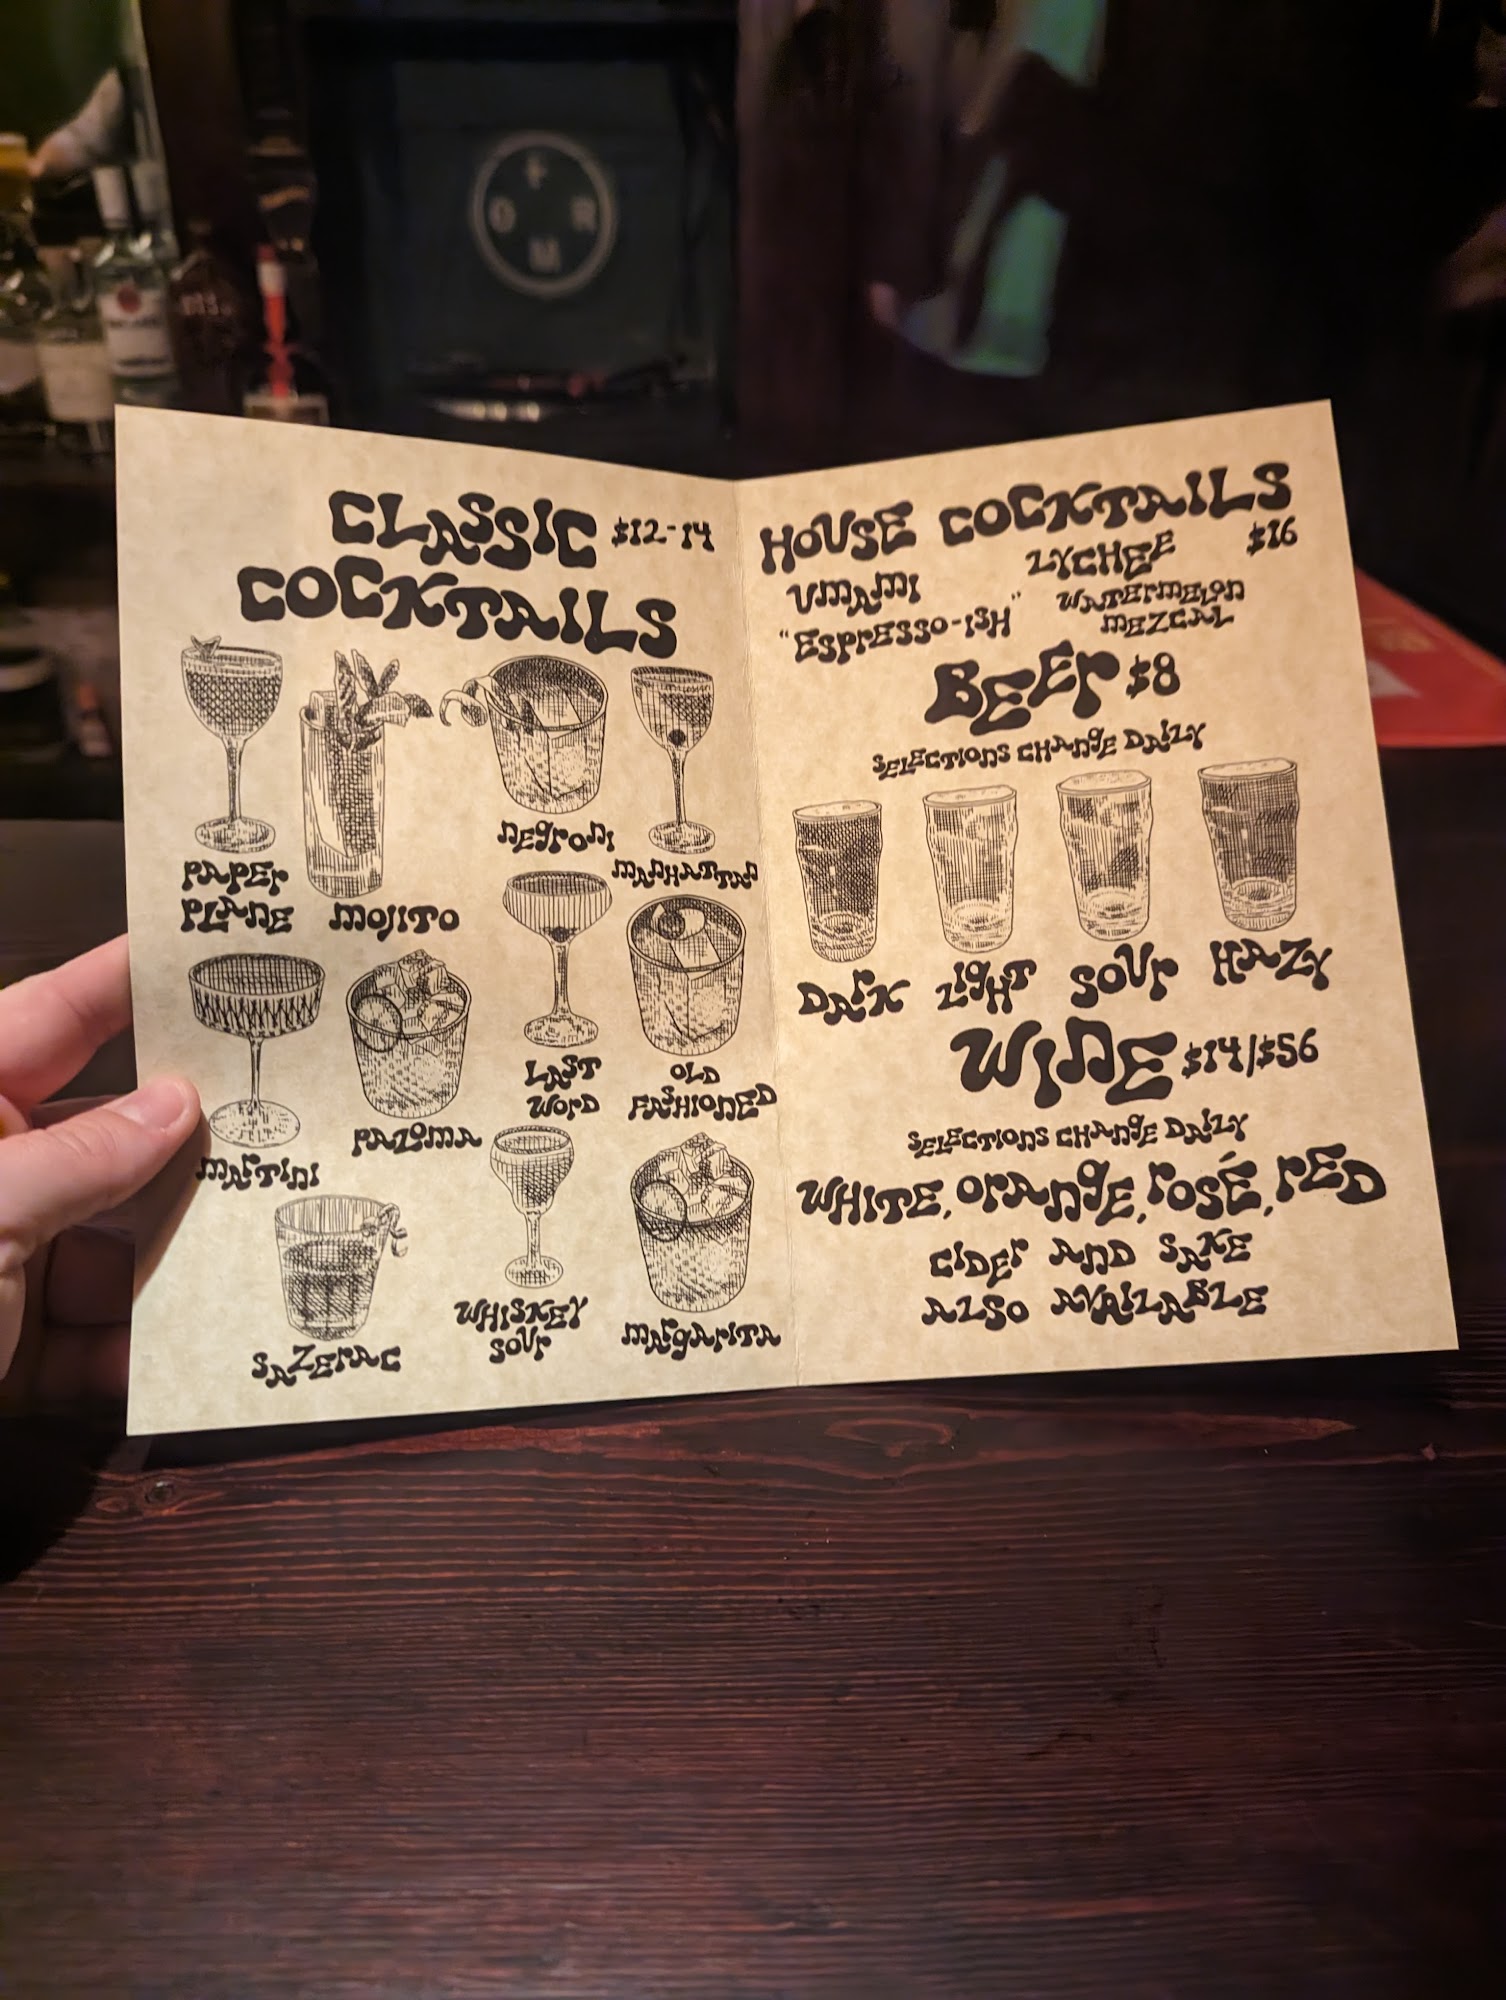 F
O R
M
CLASSIC $12-14
COCKTAILS
PAPER
PLANE
MOJITO
NEGRONI
MANHATTAN
MARTINI
PALOMA
LAST
WORD
OLD
FASHIONED
SAZERAC
WHISKEY
SOUR
MARGARITA
HOUSE COCKTAILS
$16
UMAMI
LYCHEE
"ESPRESSO-ISH"
WATERMELON
MEZCAL
BEER $8
SELECTIONS CHANGE DAILY
DARK LIGHT SOUR HAZY
WINE $14/$56
SELECTIONS CHANGE DAILY
WHITE, ORANGE, ROSÉ, RED
CIDER AND SAKE
ALSO AVAILABLE